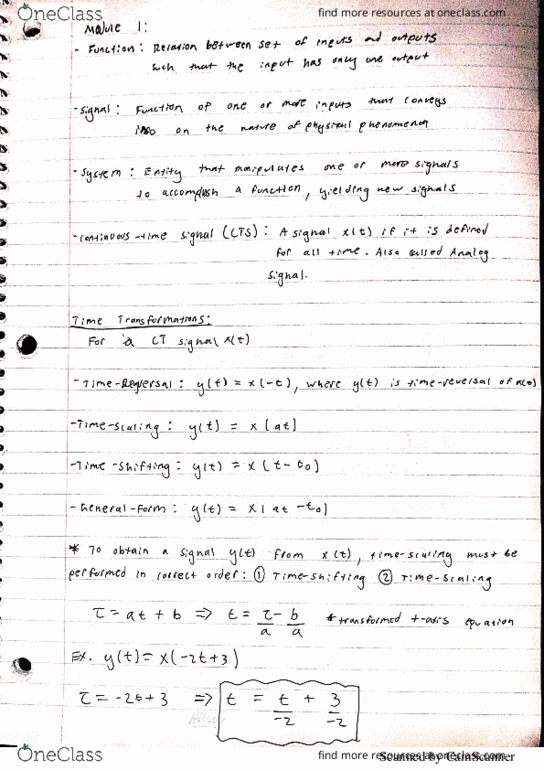 OneClass
find more resources at oneclass.com
Module 1:
- Function: Relation between set of inputs and outputs
such that the input has only one output
- Signal: Function of one or more inputs that conveys
info on the nature of physical phenomenon
- System: Entity that manipulates one or more signals
to accomplish a function, yielding new signals
- Continuous-time signal (CTS): A signal x(t) if it is defined
for all time. Also called Analog
signal.
Time Transformations:
For a CT signal x(t)
- Time-Reversal: y(t) = x(-t), where y(t) is time-reversal of x(t)
- Time-scaling: y(t) = x(at)
- Time-shifting: y(t) = x(t-t₀)
- General-Form: y(t) = x(at-t₀)
* To obtain a signal y(t) from x(t), time-scaling must be
performed in correct order: ① Time-shifting ② Time-scaling
τ = at + b ⇒ t = τ/a - b/a * transformed t-axis equation
Ex. y(t) = x(-2t+3)
τ = -2t+3 ⇒ t = t/-2 + 3/-2
OneClass
find more resources at oneclass.com
Scanned by CamScanner